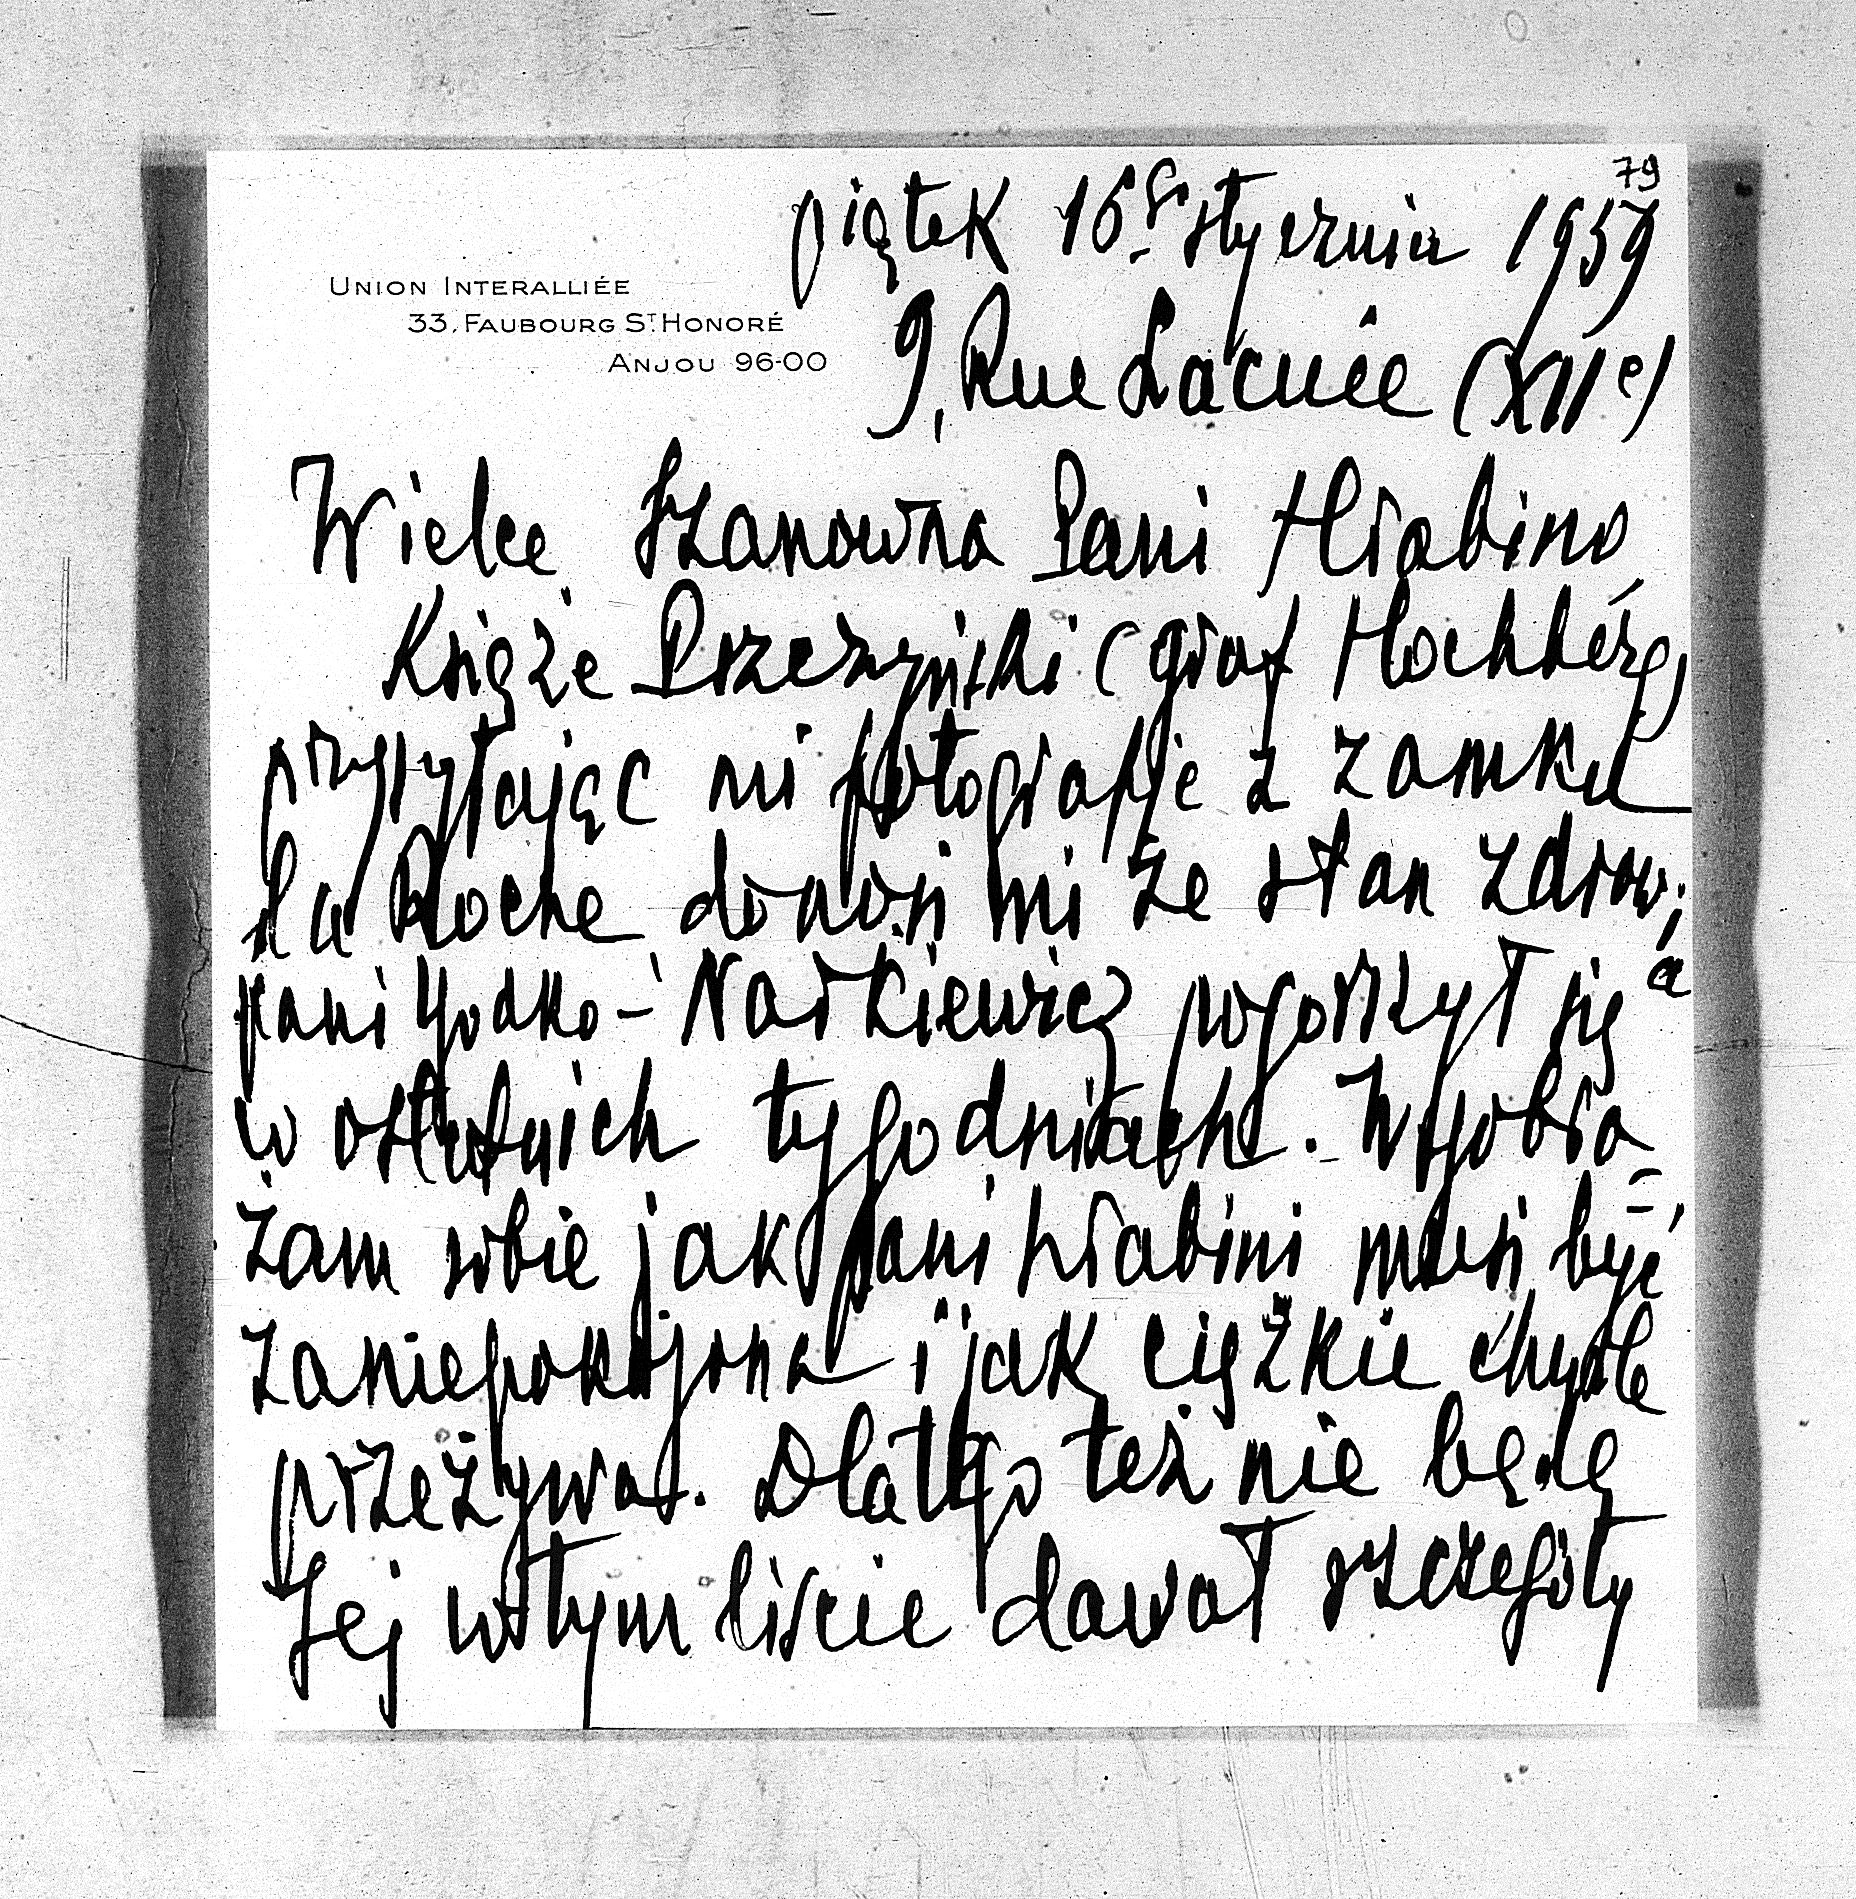 79
piątek 16go stycznia 1959
UNION INTERALLIÉE
33, FAUBOURG ST. HONORÉ
ANJOU 96-00
9, Rue Lacuée (XIIe)
Wielce Szanowna Pani Hrabino
Książe Pszczyński (graf Hochberg)
przysyłając mi fotografje z zamku
La Roche donosi mi że stan zdrowia
pani Yodko-Narkiewicz pogorszył się
w ostatnich tygodniach. Wyobra-
żam sobie jak pani hrabini musi być
zaniepokojona i jak ciężkie chwile
przeżywa. Dlatego też nie będę
Jej w tym liście dawał szczegóły